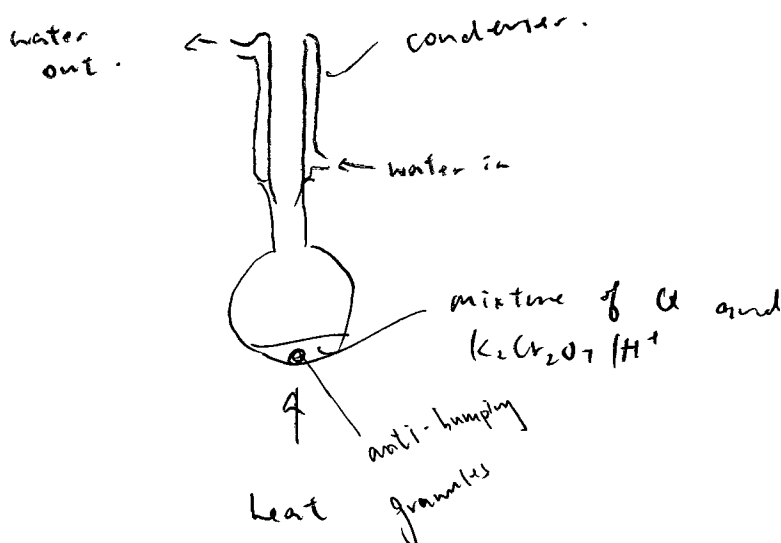 water
out.
condenser.
water in
mixture of Q and
K₂Cr₂O₇/H⁺
anti-bumping
granules
heat